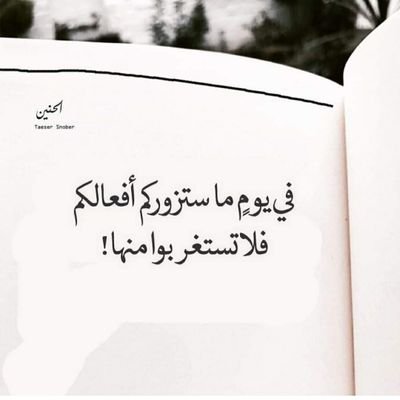 الحنين
Taeser Snober
في يومٍ ما ستزوركم أفعالكم
فلا تستغربوا منها!